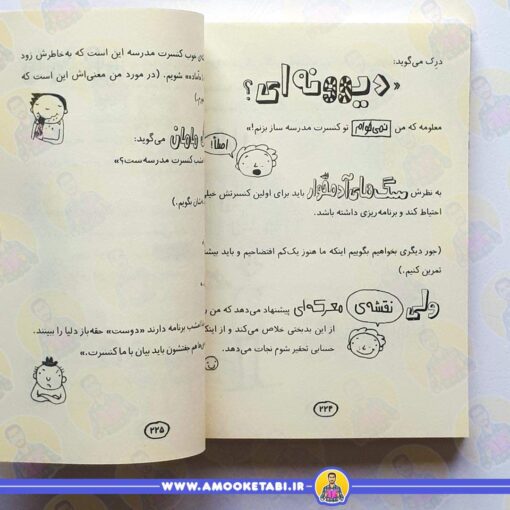 درِک می‌گوید:
«دیوونه‌ای؟
معلومه که من نمی‌خوام تو کنسرت مدرسه ساز بزنم!»
اصلاً!
به نظرش سگ‌های آدمخوار باید برای اولین کنسرتش خیلی
احتیاط کند و برنامه‌ریزی داشته باشد.
(جور دیگری بخواهیم بگوییم اینکه ما هنوز یک‌کم افتضاحیم و باید بیشتر
تمرین کنیم.)
ولی نقشه‌ی معرکه‌ای پیشنهاد می‌دهد که من را
از این بدبختی خلاص می‌کند و از اینکه
حسابی تحقیر شوم نجات می‌دهد.
۲۲۴
خوب کنسرت مدرسه این است که به‌خاطرش زود
شویم. (در مورد من معنی‌اش این است که
مامان می‌گوید:
کنسرت مدرسه‌ست؟»
بگویم.)
برنامه دارند «دوست» حقه‌باز دلیا را ببینند.
هم جفتشون باید بیان با ما کنسرت.»
۲۲۵
WWW.AMOOKETABI.IR